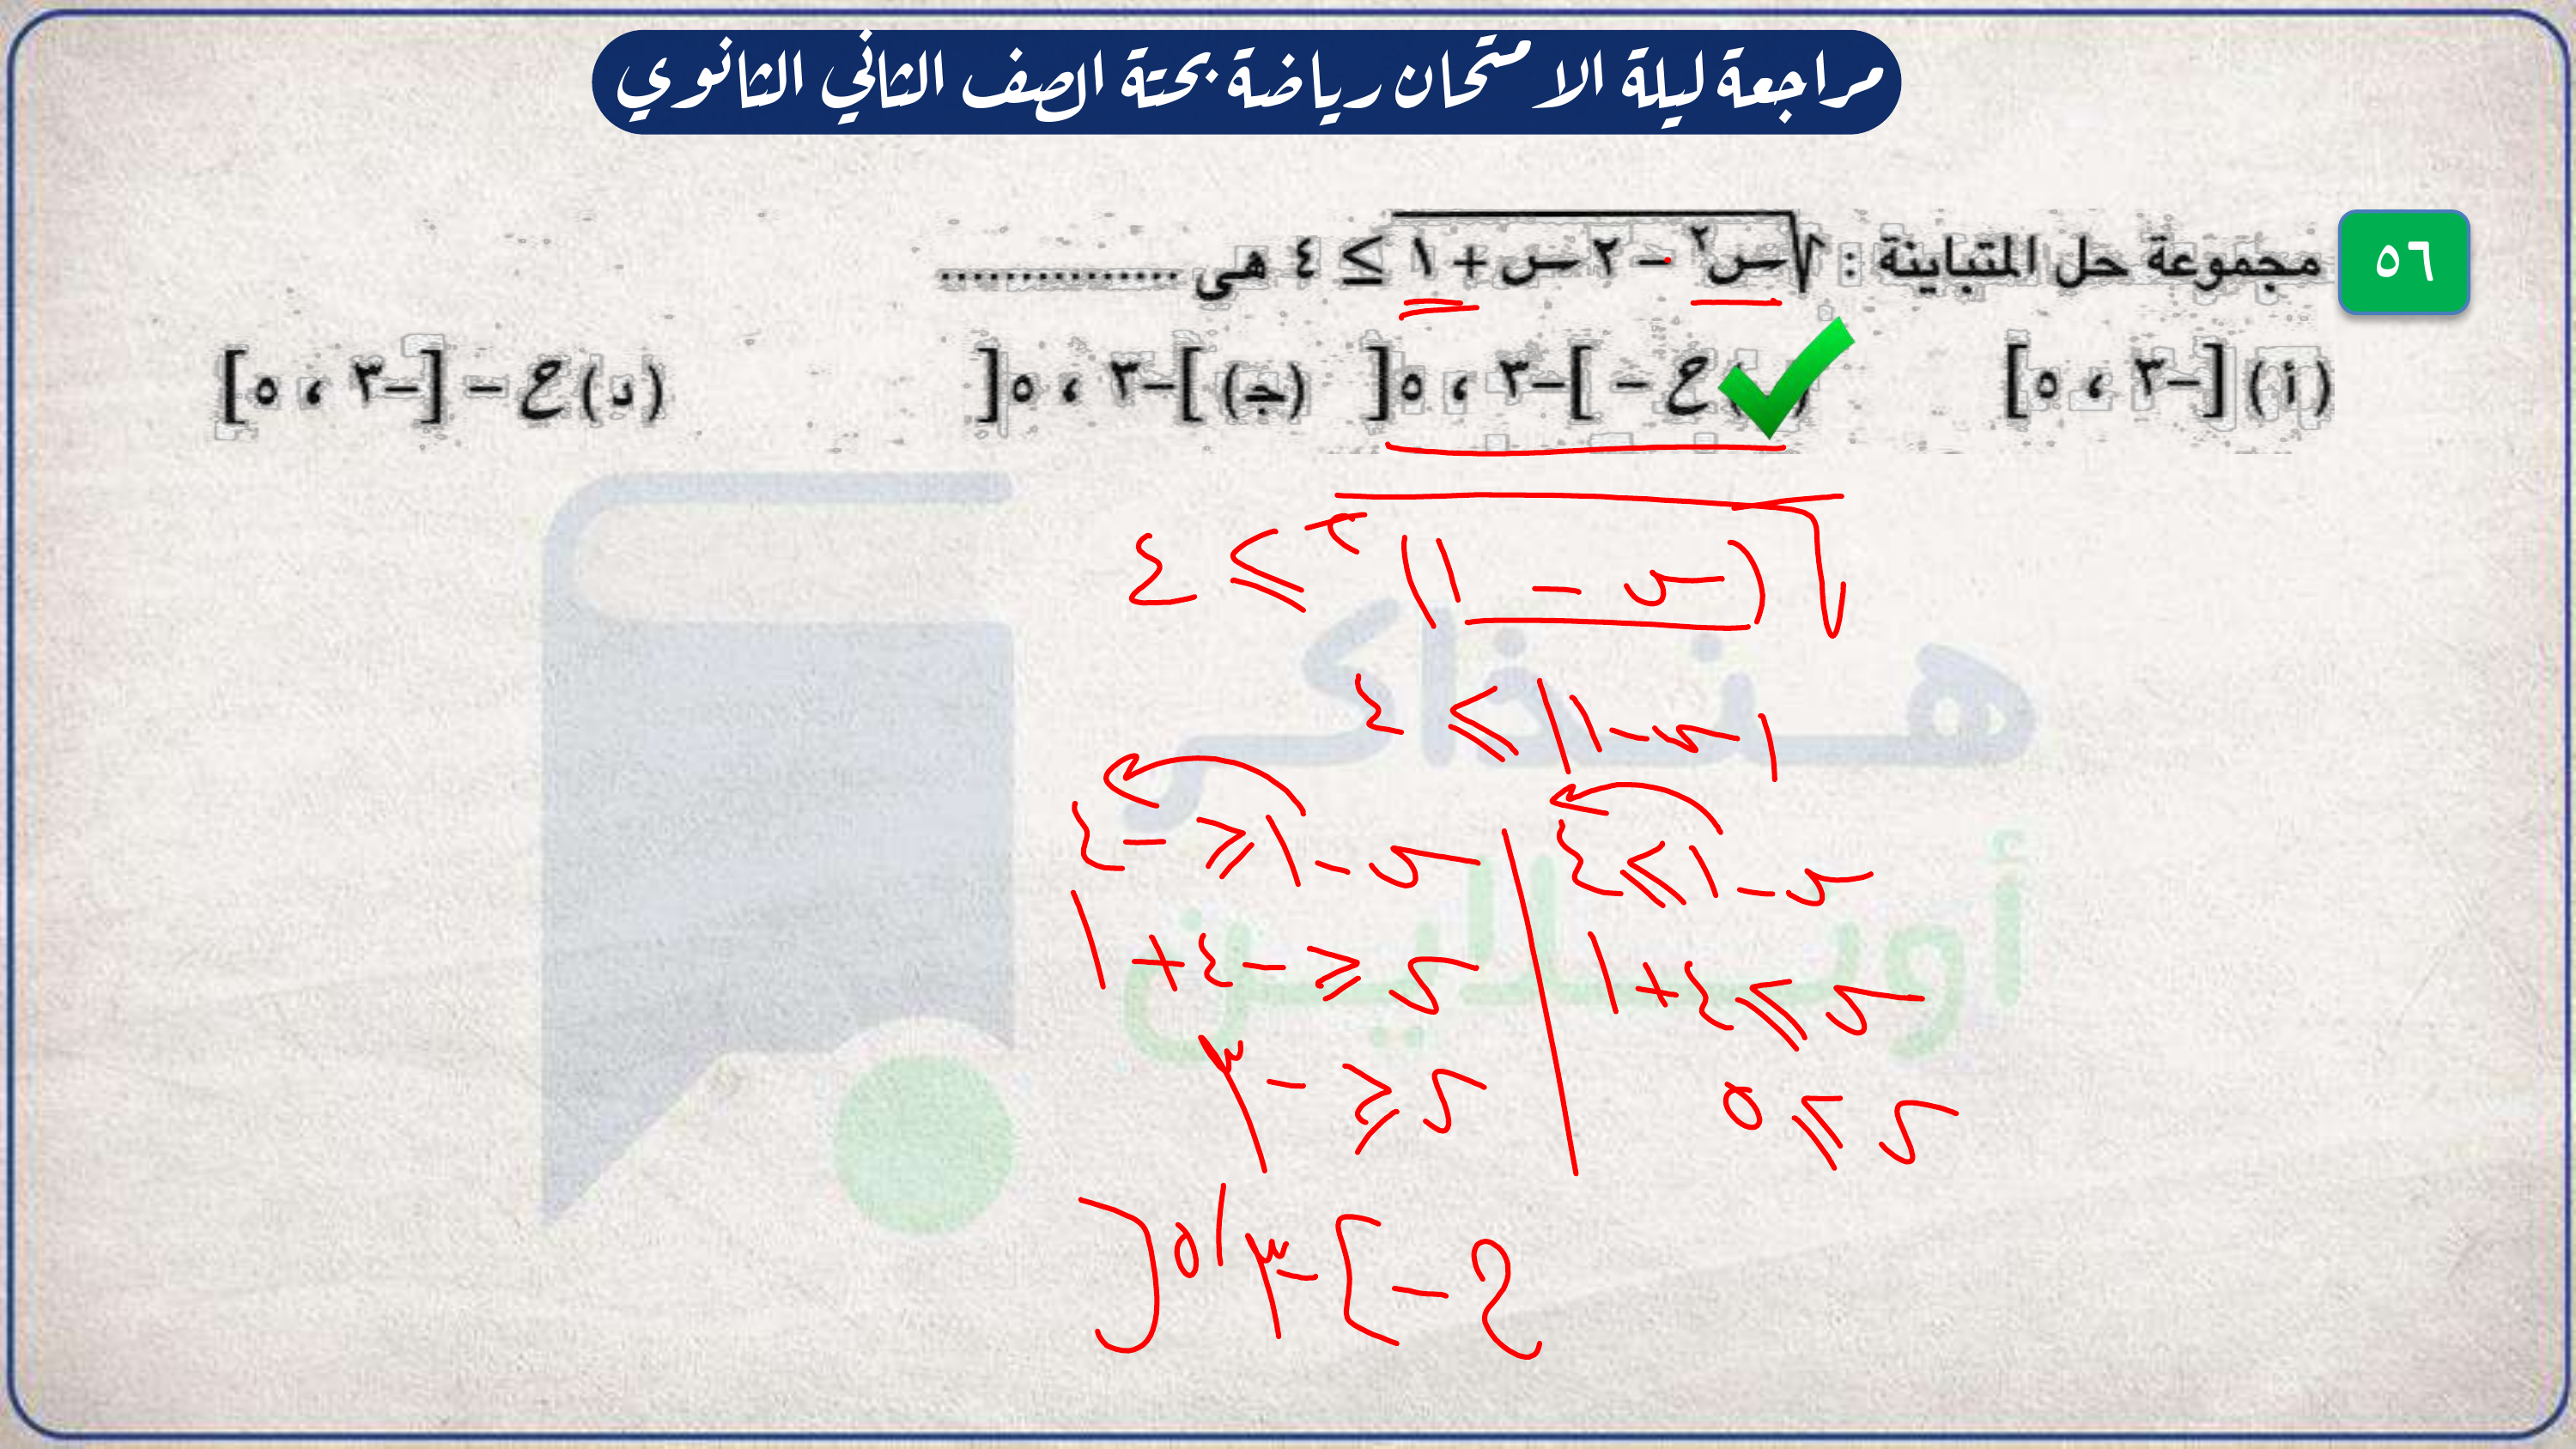 مراجعة ليلة الامتحان رياضة بحتة الصف الثاني الثانوي
٥٦
مجموعة حل المتباينة : √(س² - ٢ س + ١) ≥ ٤ هى ...............
(أ) [-٣ ، ٥] ) ح - ]-٣ ، ٥[ (جـ) ]-٣ ، ٥[ (د) ح - [-٣ ، ٥]
√(س - ١)² ≥ ٤
|س - ١| ≥ ٤
س - ١ ≥ ٤ | س - ١ ≤ -٤
س ≥ ٤ + ١ | س ≤ -٤ + ١
س ≥ ٥ | س ≤ -٣
ح - ]-٣ ، ٥[
هنذاكر
أونلاين